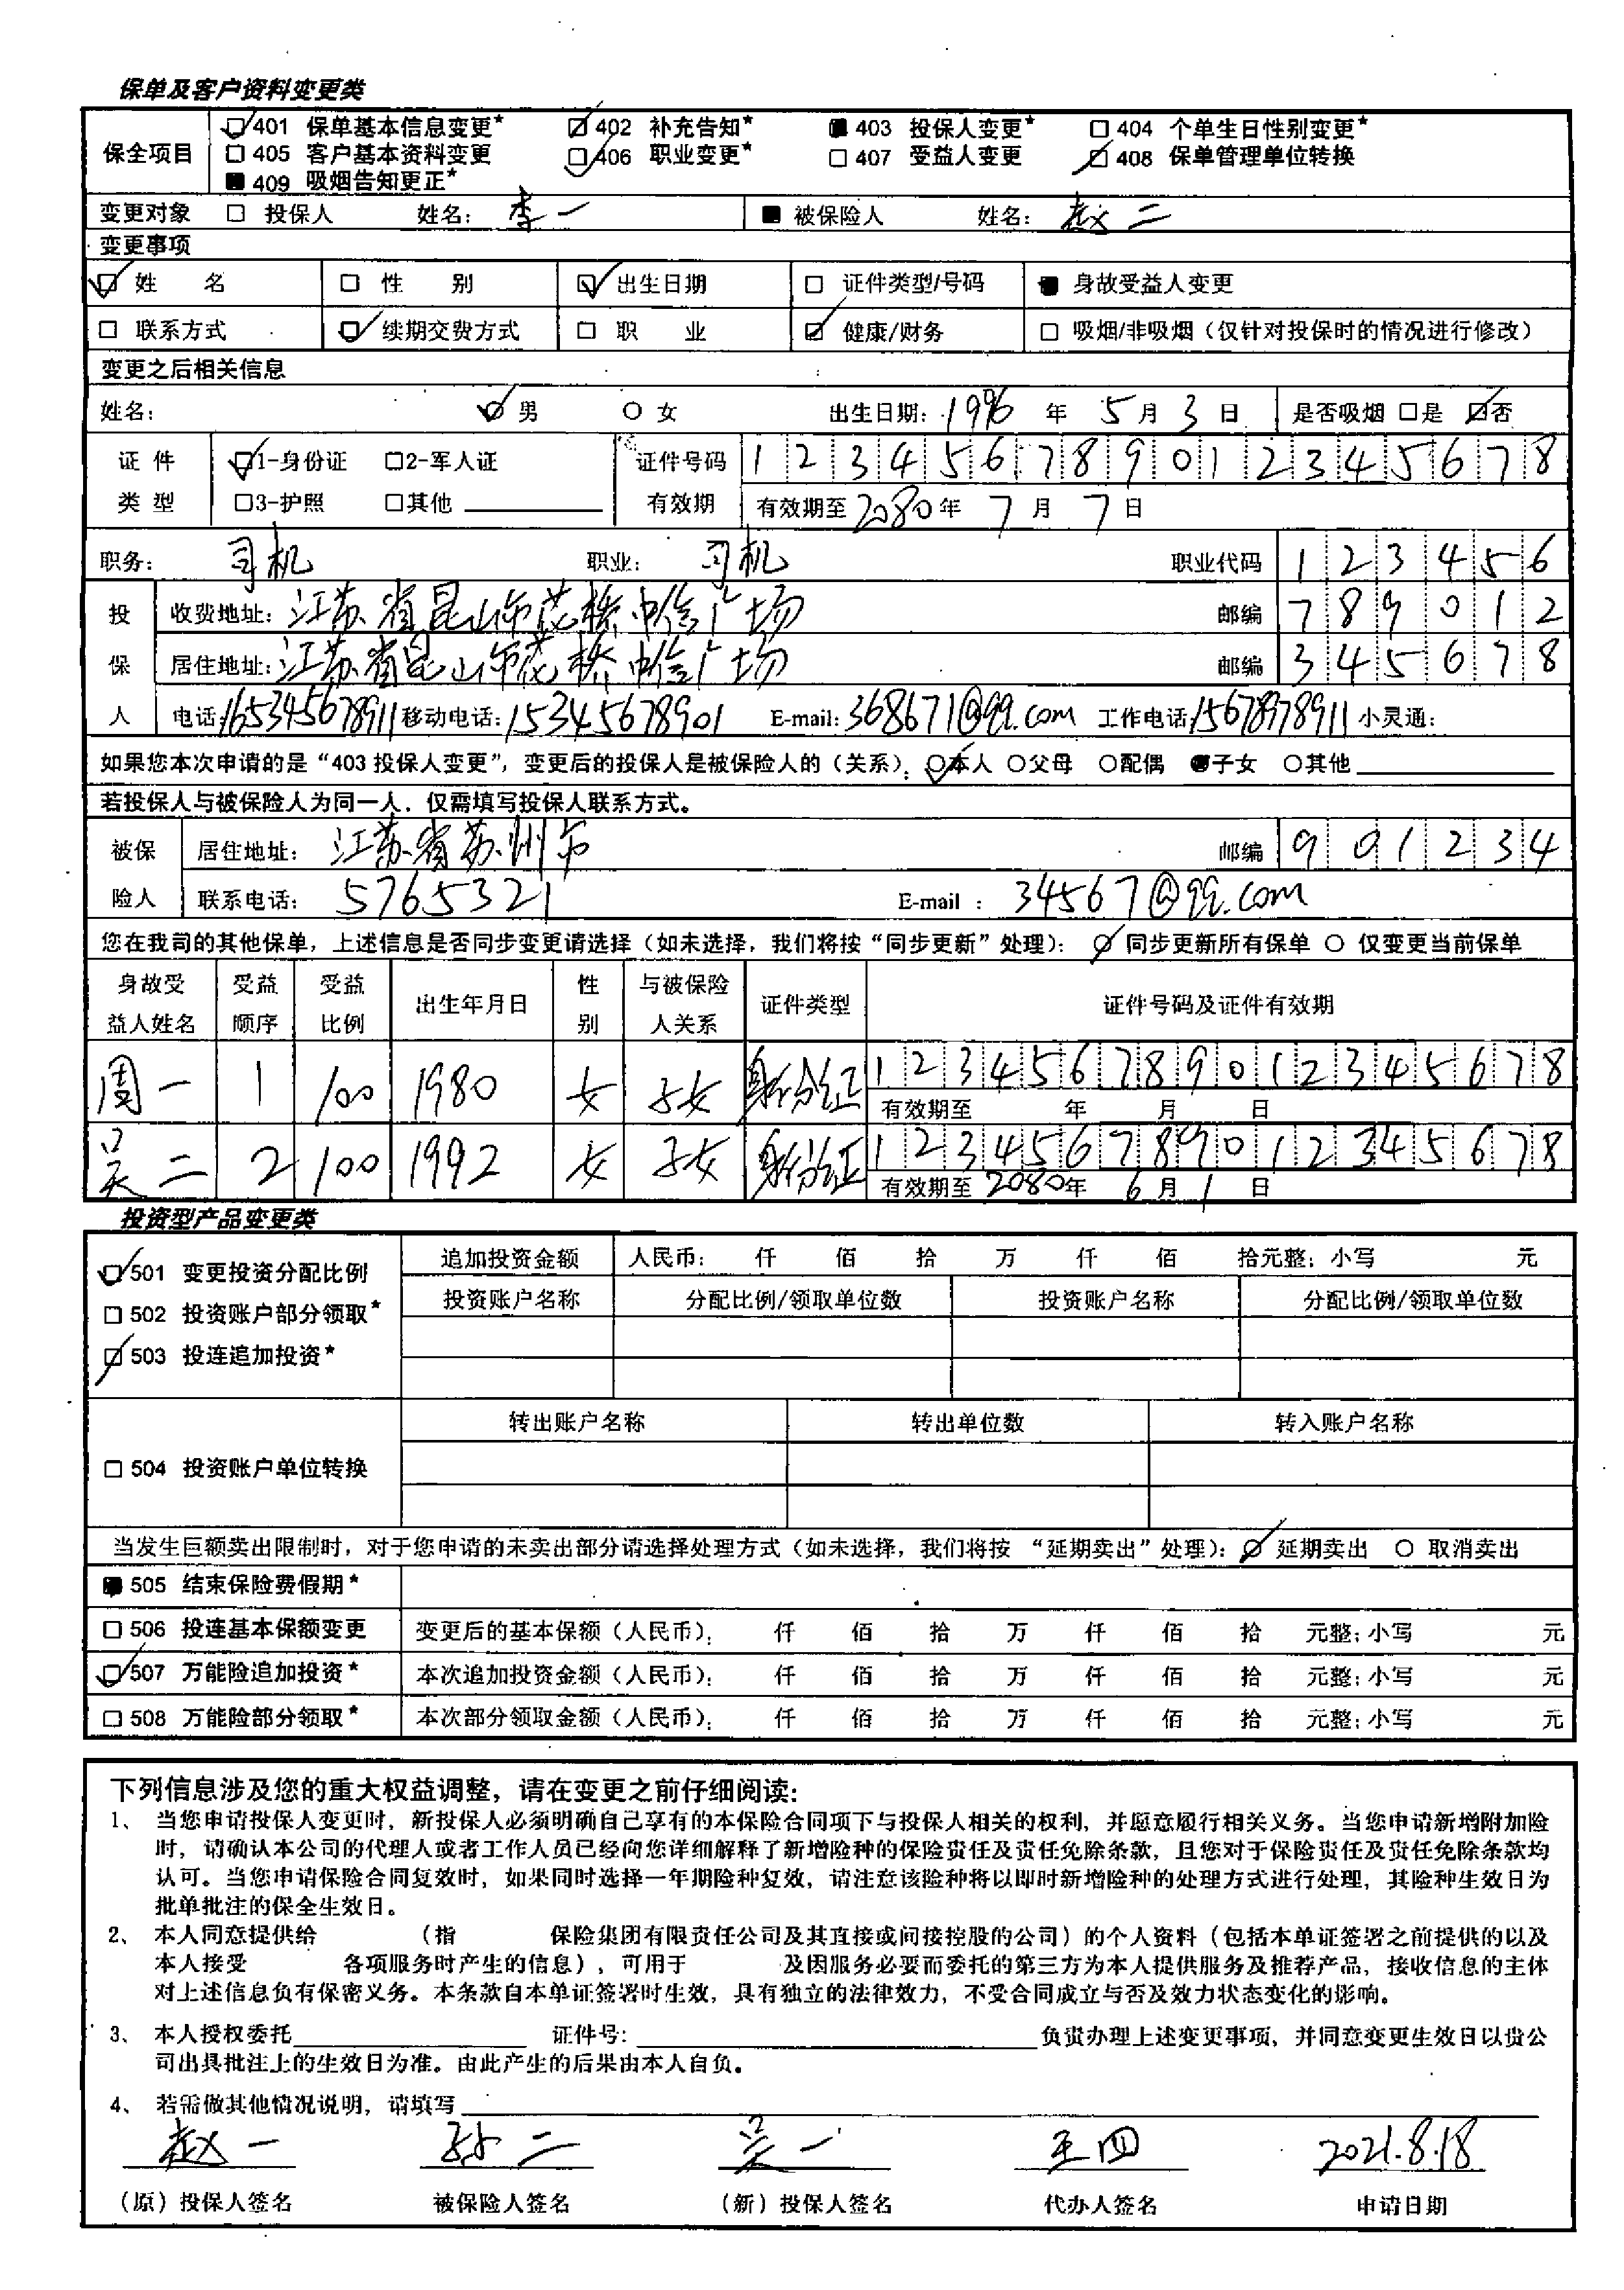 保单及客户资料变更类
保全项目
☑401 保单基本信息变更* ☑402 补充告知* ■403 投保人变更* □404 个单生日性别变更*
□405 客户基本资料变更 ☑406 职业变更* □407 受益人变更 ☑408 保单管理单位转换
■409 吸烟告知更正*
变更对象 □ 投保人 姓名: 李一 ■ 被保险人 姓名: 赵二
变更事项
☑ 姓 名 □ 性 别 ☑ 出生日期 □ 证件类型/号码 ■ 身故受益人变更
□ 联系方式 ☑ 续期交费方式 □ 职 业 ☑ 健康/财务 □ 吸烟/非吸烟（仅针对投保时的情况进行修改）
变更之后相关信息
姓名: ☑ 男 ○ 女 出生日期: 1996 年 5 月 3 日 是否吸烟 □是 ☑否
证 件 ☑1-身份证 □2-军人证 证件号码 123456789012345678
类 型 □3-护照 □其他 有效期 有效期至 2080 年 7 月 7 日
职务: 司机 职业: 司机 职业代码 123456
投 收费地址: 江苏省昆山市花桥中信广场 邮编 789012
保 居住地址: 江苏省昆山市花桥中信广场 邮编 345678
人 电话: 165345678911 移动电话: 15345678901 E-mail: 368671@qq.com 工作电话: 15678978911 小灵通:
如果您本次申请的是“403 投保人变更”，变更后的投保人是被保险人的（关系）: ☑本人 ○父母 ○配偶 ●子女 ○其他
若投保人与被保险人为同一人，仅需填写投保人联系方式。
被保 居住地址: 江苏省苏州市 邮编 901234
险人 联系电话: 5765321 E-mail : 34567@qq.com
您在我司的其他保单，上述信息是否同步变更请选择（如未选择，我们将按“同步更新”处理）: ☑ 同步更新所有保单 ○ 仅变更当前保单
身故受益人姓名 受益顺序 受益比例 出生年月日 性别 与被保险人关系 证件类型 证件号码及证件有效期
周一 1 100 1980 女 子女 身份证 123456789012345678
有效期至 年 月 日
吴二 2 100 1992 女 子女 身份证 123456789012345678
有效期至 2080年 6 月 1 日
投资型产品变更类
☑501 变更投资分配比例 追加投资金额 人民币: 仟 佰 拾 万 仟 佰 拾元整; 小写 元
□502 投资账户部分领取* 投资账户名称 分配比例/领取单位数 投资账户名称 分配比例/领取单位数
☑503 投连追加投资*
转出账户名称 转出单位数 转入账户名称
□504 投资账户单位转换
当发生巨额卖出限制时，对于您申请的未卖出部分请选择处理方式（如未选择，我们将按 “延期卖出”处理）: ☑ 延期卖出 ○ 取消卖出
■505 结束保险费假期*
□506 投连基本保额变更 变更后的基本保额（人民币）: 仟 佰 拾 万 仟 佰 拾 元整; 小写 元
☑507 万能险追加投资* 本次追加投资金额（人民币）: 仟 佰 拾 万 仟 佰 拾 元整; 小写 元
□508 万能险部分领取* 本次部分领取金额（人民币）: 仟 佰 拾 万 仟 佰 拾 元整; 小写 元
下列信息涉及您的重大权益调整，请在变更之前仔细阅读:
1、当您申请投保人变更时，新投保人必须明确自己享有的本保险合同项下与投保人相关的权利，并愿意履行相关义务。当您申请新增附加险
时，请确认本公司的代理人或者工作人员已经向您详细解释了新增险种的保险责任及责任免除条款，且您对于保险责任及责任免除条款均
认可。当您申请保险合同复效时，如果同时选择一年期险种复效，请注意该险种将以即时新增险种的处理方式进行处理，其险种生效日为
批单批注的保全生效日。
2、本人同意提供给 （指 保险集团有限责任公司及其直接或间接控股的公司）的个人资料（包括本单证签署之前提供的以及
本人接受 各项服务时产生的信息），可用于 及因服务必要而委托的第三方为本人提供服务及推荐产品，接收信息的主体
对上述信息负有保密义务。本条款自本单证签署时生效，具有独立的法律效力，不受合同成立与否及效力状态变化的影响。
3、本人授权委托 证件号: 负责办理上述变更事项，并同意变更生效日以贵公
司出具批注上的生效日为准。由此产生的后果由本人自负。
4、若需做其他情况说明，请填写
赵一 孙二 吴一 王四 2021.8.18
（原）投保人签名 被保险人签名 （新）投保人签名 代办人签名 申请日期